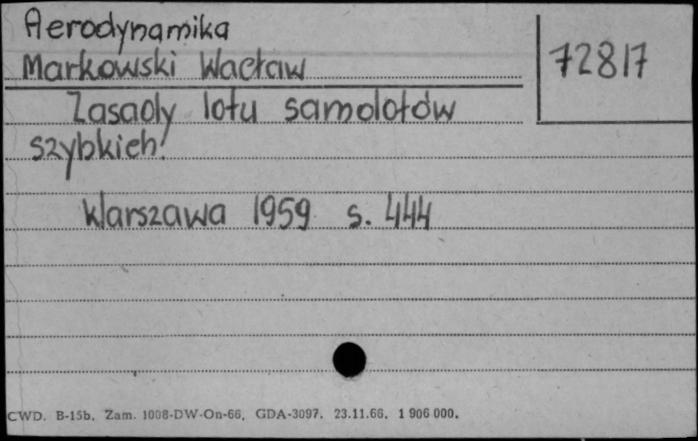 Aerodynamika
Markowski Wacław
72817
Zasady lotu samolotów
szybkich!
Warszawa 1959 s. 444
CWD. B-15b. Zam. 1008-DW-On-66, GDA-3097. 23.11.66. 1 906 000.